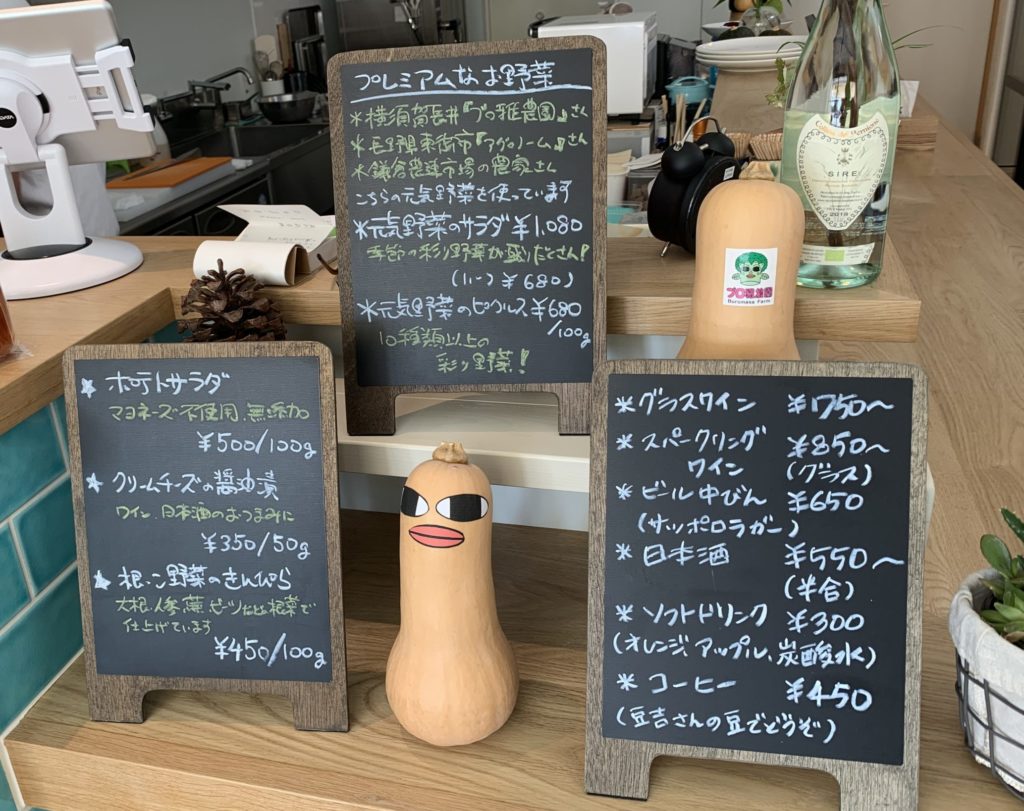 プレミアムなお野菜
*横須賀長井『ブロ雅農園』さん
*長野県東御市『アグローム』さん
*鎌倉農連市場の農家さん
こちらの元気野菜を使っています
*元気野菜のサラダ ¥1.080
季節の彩り野菜が盛りだくさん!
(ハーフ ¥680)
*元気野菜のピクルス ¥680
/100g
10種類以上の
彩り野菜!
☆ポテトサラダ
マヨネーズ不使用、無添加
¥500/100g
☆クリームチーズの醤油漬
ワイン、日本酒のおつまみに
¥350/50g
☆根っこ野菜のきんぴら
大根、人参、蓮、ビーツなど根菜で
仕上げています
¥450/100g
*グラスワイン ¥750〜
*スパークリング ¥850〜
ワイン (グラス)
*ビール中びん ¥650
(サッポロラガー)
*日本酒 ¥550〜
(半合)
*ソフトドリンク ¥300
(オレンジ アップル、炭酸水)
*コーヒー ¥450
(豆吉さんの豆でどうぞ)
ブロ雅農園
Buromasa Farm
SIRE
2019